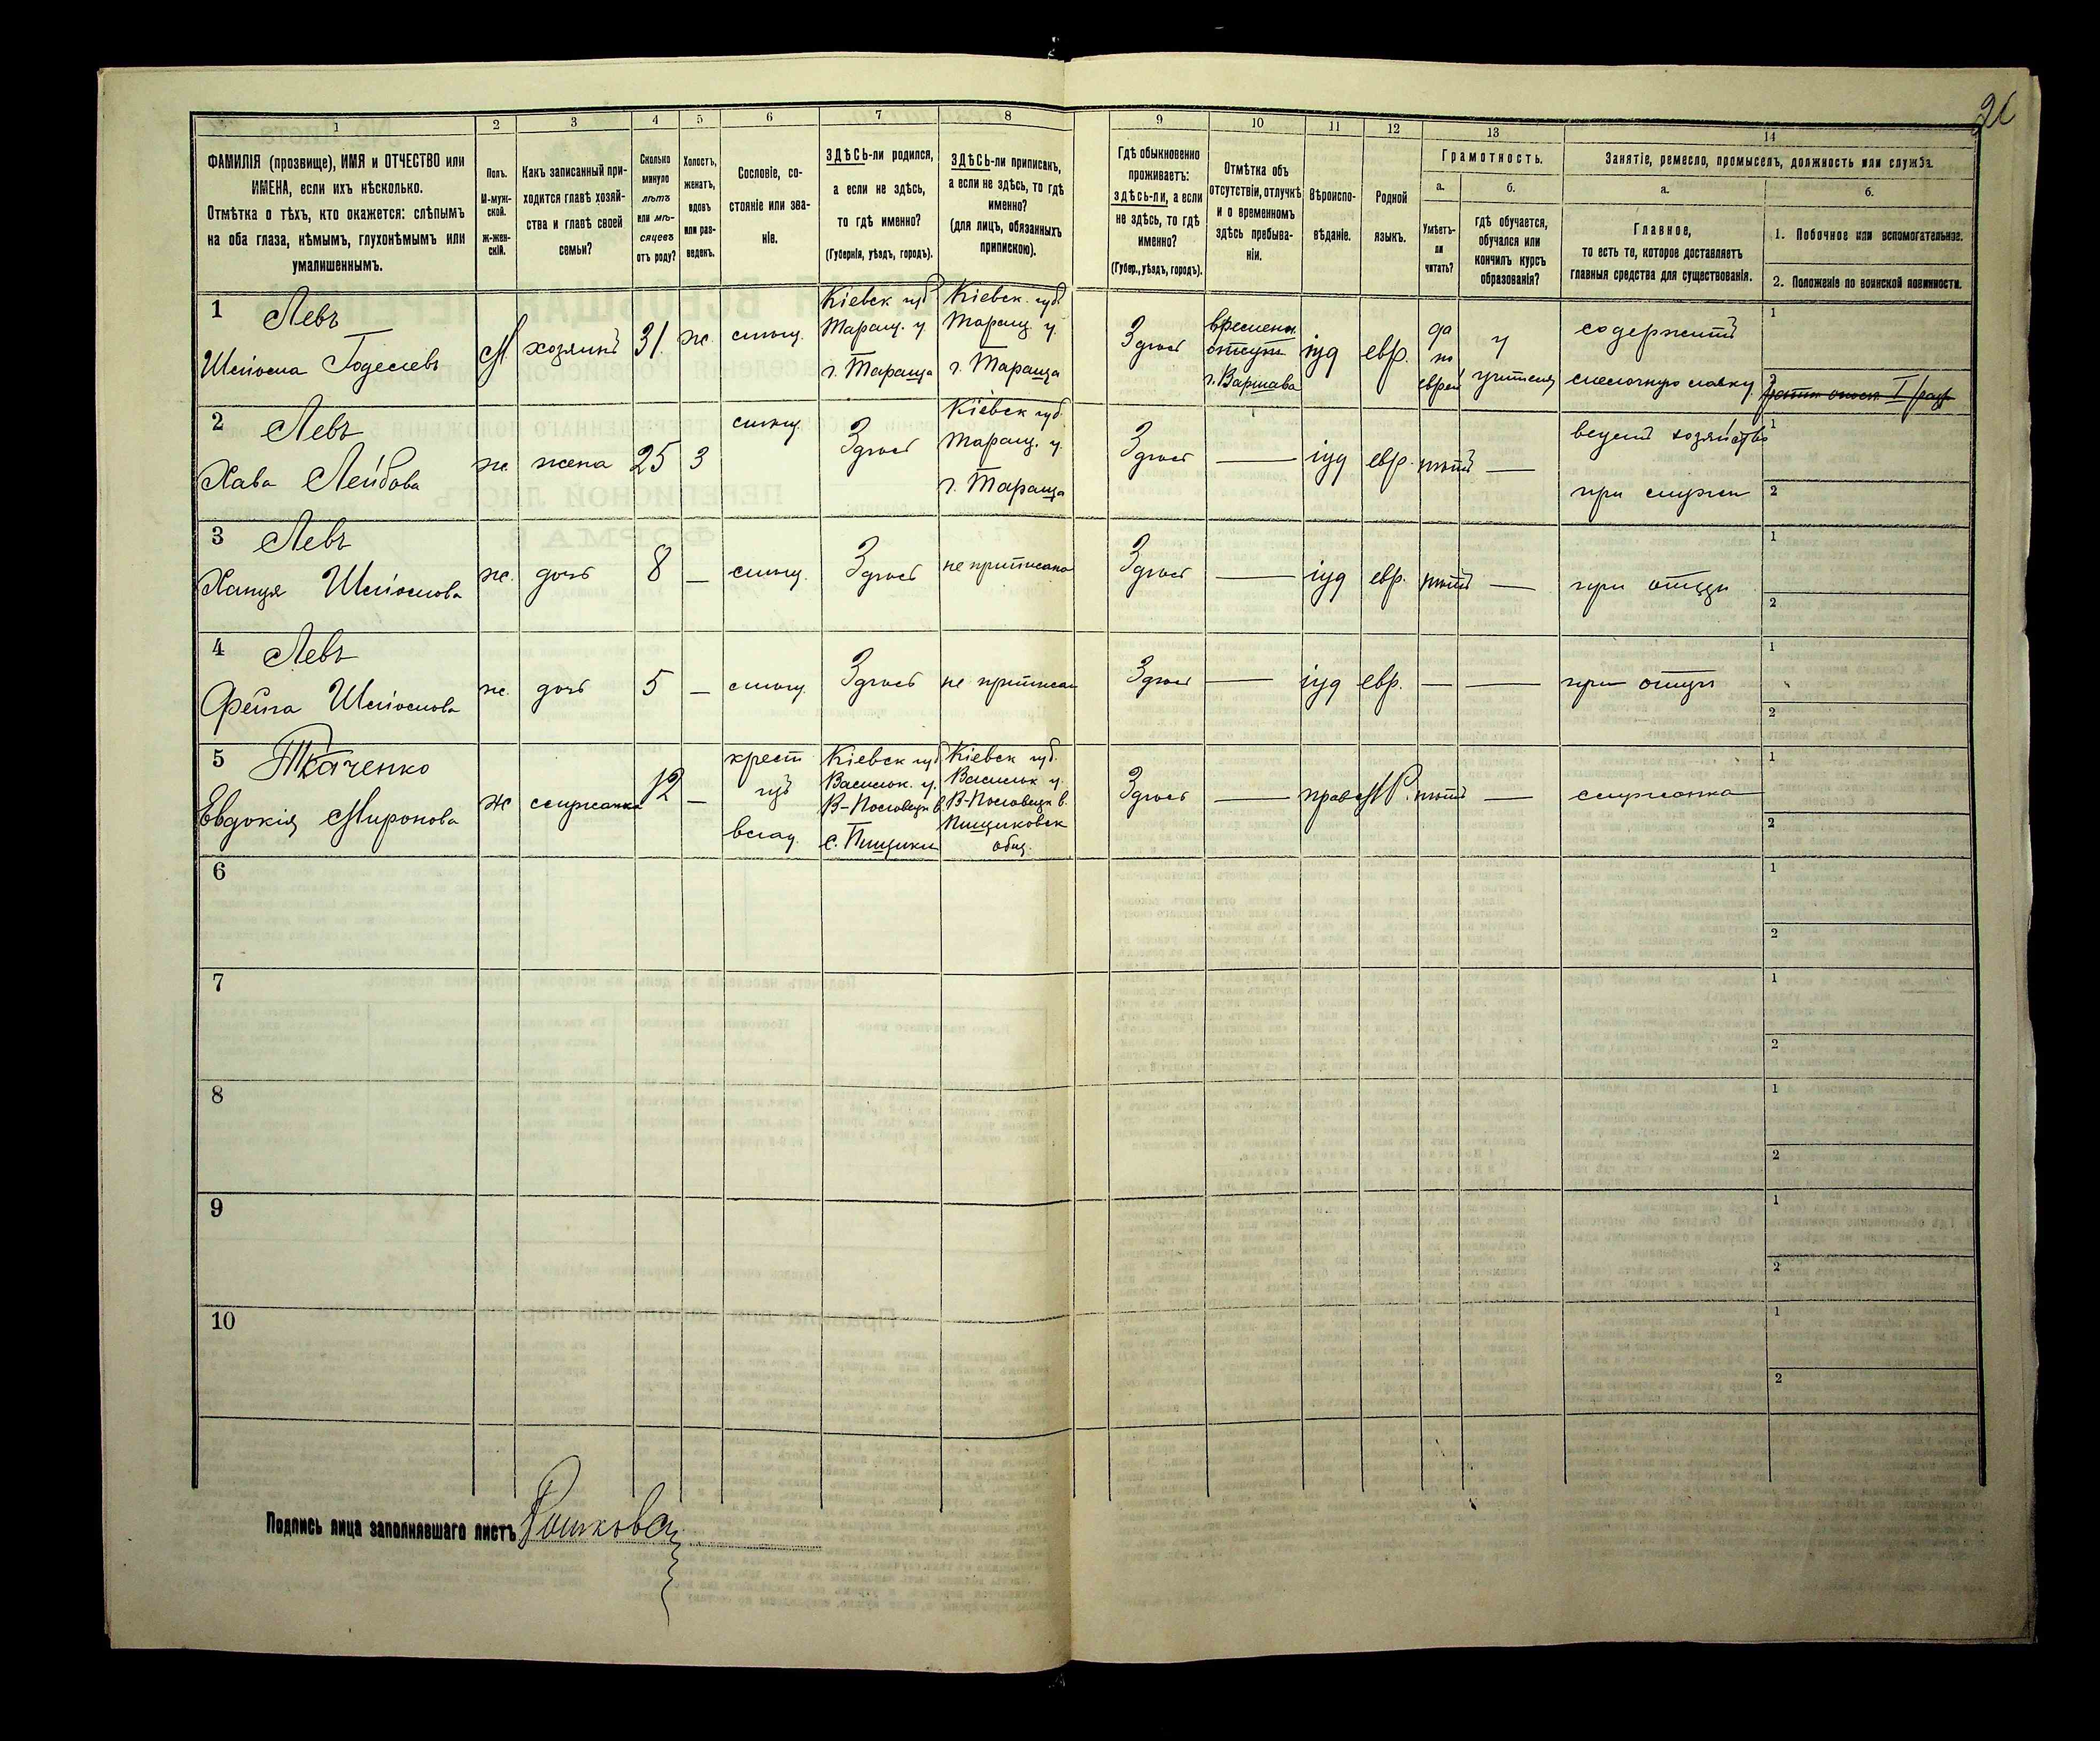 21
1 2 3 4 5 6 7 8 9 10 11 12 13 14
ФАМИЛІЯ (прозвище), ИМЯ и ОТЧЕСТВО или
ИМЕНА, если ихъ нѣсколько.
Отмѣтка о тѣхъ, кто окажется: слѣпымъ
на оба глаза, нѣмымъ, глухонѣмымъ или
умалишеннымъ.
Полъ.
М-муж-
ской.
ж-жен-
скій.
Какъ записанный при-
ходится главѣ хозяй-
ства и главѣ своей
семьи?
Сколько
минуло
лѣтъ
или мѣ-
сяцевъ
отъ роду?
Холостъ,
женатъ,
вдовъ
или раз-
веденъ.
Сословіе, со-
стояніе или зва-
ніе.
ЗДѢСЬ-ли родился,
а если не здѣсь,
то гдѣ именно?
(Губернія, уѣздъ, городъ).
ЗДѢСЬ-ли приписанъ,
а если не здѣсь, то гдѣ
именно?
(для лицъ, обязанныхъ
припискою).
Гдѣ обыкновенно
проживаетъ:
здѣсь-ли, а если
не здѣсь, то гдѣ
именно?
(Губер., уѣздъ, городъ).
Отмѣтка объ
отсутствіи, отлучкѣ
и о временномъ
здѣсь пребыва-
ніи.
Вѣроиспо-
вѣданіе.
Родной
языкъ.
Грамотность.
а.
Умѣетъ-
ли
читать?
б.
Гдѣ обучается,
обучался или
кончилъ курсъ
образованія?
Занятіе, ремесло, промыселъ, должность или служба.
а.
Главное,
то есть то, которое доставляетъ
главныя средства для существованія.
б.
1. Побочное или вспомогательное.
2. Положеніе по воинской повинности.
1 Левъ
Шліома Годелевъ
М. хозяинъ 31. ж. мѣщ.
Кіевск губ
Таращ. у
г. Тараща
Кіевск. губ
Таращ у.
г. Тараща
Здѣсь
времен.
отсут
г. Варшава
іуд евр.
да
по
еврей
у
учителя
содержитъ
мелочную лавку
1
2
2 Левъ
Хава Лейбова
ж. жена 25 З мѣщ. Здѣсь
Кіевск губ.
Таращ. у.
г. Тараща
Здѣсь — іуд евр. нѣтъ —
ведетъ хозяйство
при мужѣ
1
2
3 Левъ
Ханця Шліомова
ж. дочь 8 — мѣщ. Здѣсь не приписана Здѣсь — іуд евр. нѣтъ — при отцѣ
1
2
4 Левъ
Фейга Шліомова
ж. дочь 5 — мѣщ. Здѣсь не приписан Здѣсь — іуд евр. — — при отцѣ
1
2
5 Ткаченко
Евдокія Миронова
ж служанка 12 —
крест
изъ
влад.
Кіевск губ
Васильк. у.
В-Половецк в
с. Пищики
Кіевск губ.
Васильк у.
В-Половецк в.
Пищиковск
общ.
Здѣсь — прав М.Р. нѣтъ — служанка
1
2
6
1
2
7
1
2
8
1
2
9
1
2
10
1
2
Подпись лица заполнявшаго листъ